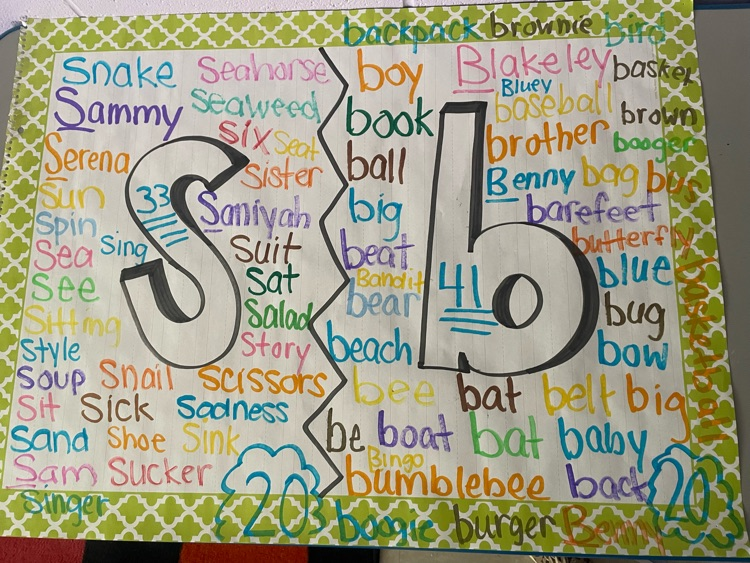 backpack brownie bird
Snake Seahorse
Sammy Seaweed
six Seat
Serena Sister
Sun
33
Saniyah
Spin
Sing
Sea suit
S
See sat
Sitting Salad
Style Story
Soup Snail Scissors
Sit Sick Sadness
Sand Shoe Sink
Sam Sucker
Singer
20
boy Blakeley basket
Bluey
book baseball brown
brother booger
ball Benny bag bus
big barefeet
beat butterfly
Bandit blue
bear
b
41
bug
beach bow
basketball
bee bat belt big
be boat bat baby
Bingo
bumblebee back
20
boogie burger Benny